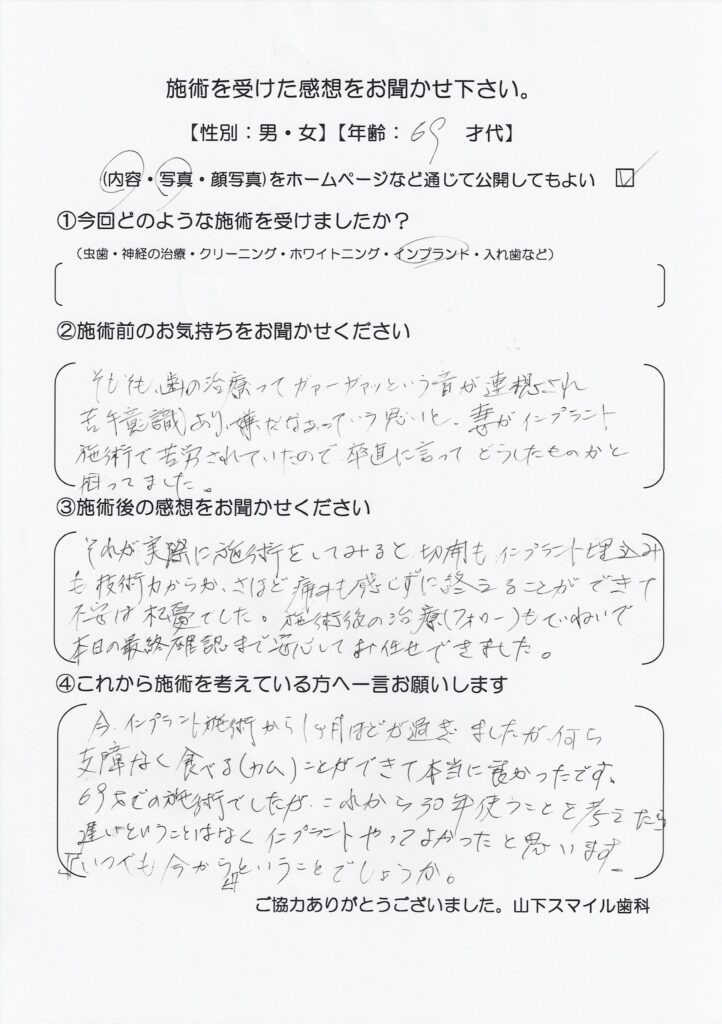 施術を受けた感想をお聞かせ下さい。
【性別：男・女】【年齢： 69 才代】
(内容・写真・顔写真)をホームページなど通じて公開してもよい ☑
①今回どのような施術を受けましたか？
（虫歯・神経の治療・クリーニング・ホワイトニング・インプラント・入れ歯など）
②施術前のお気持ちをお聞かせください
そもそも、歯の治療ってガァーガァッという音が連想され
苦手意識あり、嫌だなあっていう思いと、妻がインプラント
施術で苦労されていたので、率直に言ってどうしたものかと
困ってました。
③施術後の感想をお聞かせください
それが実際に施術をしてみると、切開も、インプラント埋込み
も技術力からか、さほど痛みも感じずに終えることができて
不安は杞憂でした。施術後の治療(フォロー)もていねいで
本日の最終確認まで安心してお任せできました。
④これから施術を考えている方へ一言お願いします
今、インプラント施術から1ヶ月ほどが過ぎましたが、何ら
支障なく食べる(カム)ことができて本当に良かったです。
69才での施術でしたが、これから30年使うことを考えたら
遅いということはなくインプラントやってよかったと思います。
『いつでも今から』ということでしょうか。
ご協力ありがとうございました。山下スマイル歯科